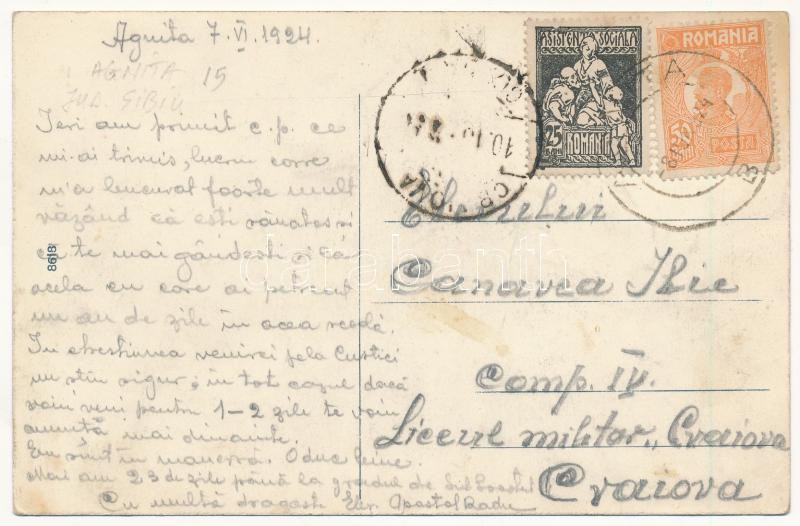 Agnita 7.VI.1924.
AGNITA 15
JUD. SIBIU
Ieri am primit c.p. ce
mi-ai trimis, lucru care
m'a bucurat foarte mult
văzând că ești sănătos și
că te mai gândești și la
acela cu care ai petrecut
un an de zile în acea școală.
În chestiunea venirei pela
nu știu sigur; în tot cazul dacă
voiu veni pentru 1-2 zile te voiu
anunță mai dinainte.
Eu sunt în manevră. O duc bine.
Mai am 23 de zile până la gradul de
Cu multă dragoste Apostol Radu
8618
ASISTENȚA SOCIALĂ
25 BANI
ROMANIA
ROMANIA
50
POSTA
Elevului
Canavea Ilie
Comp. IV.
Liceul militar, Craiova
Craiova
darabanth